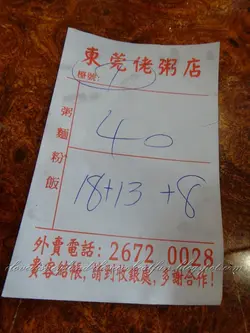 東莞佬粥店
檯號:
粥麵粉飯
40
18+13+8
外賣電話: 2672 0028
貴客結帳, 請到收銀處, 多謝合作!